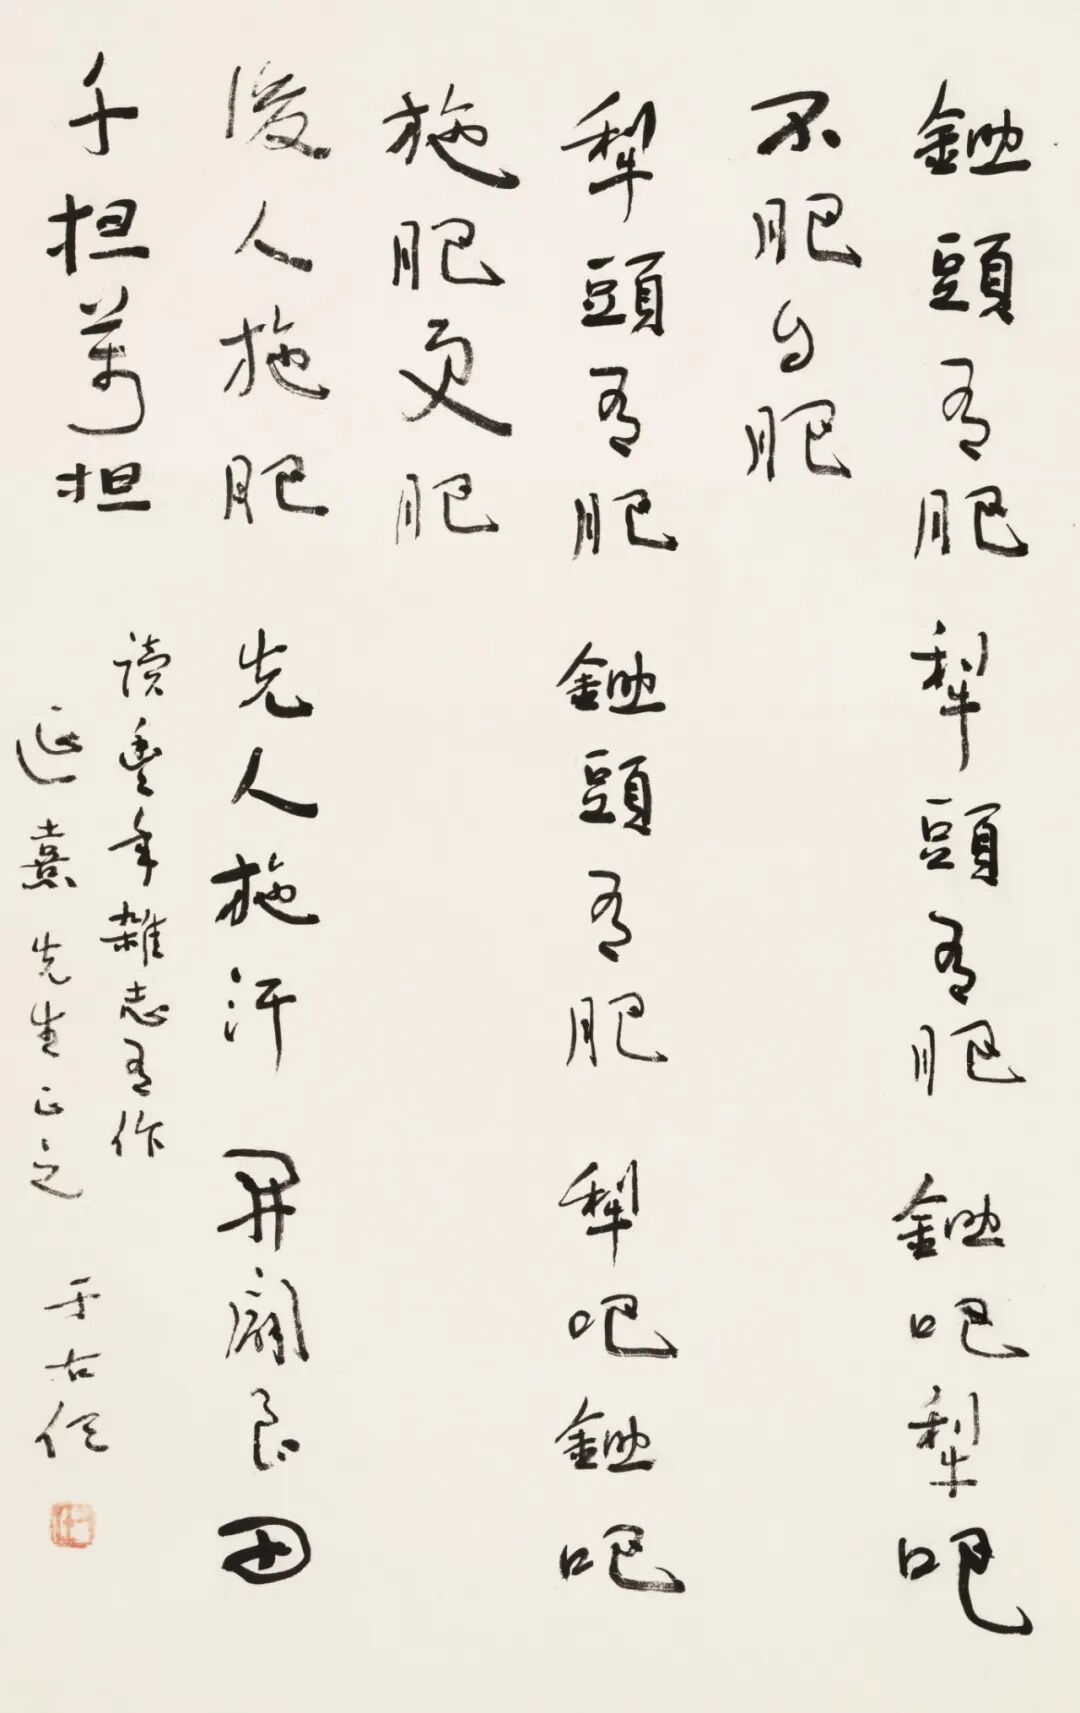 鋤頭有肥 犁頭有肥 鋤吧犁吧
不肥自肥
犁頭有肥 鋤頭有肥 犁吧鋤吧
施肥更肥
後人施肥 先人施汗 開闢良田
千担萬担
讀豐年雜志有作
延熹先生正之 于右任